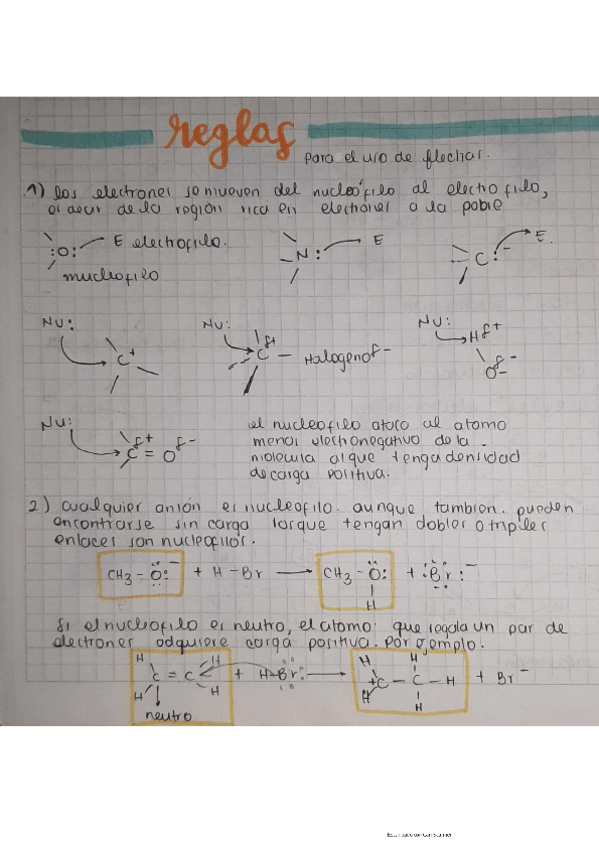 reglas
para el uso de flechas.
1) los electrones se mueven del nucleófilo al electrofilo,
es decir de la región rica en electrones a la pobre
:O: E electrofilo. N: E C:⁻ E.
nucleofilo
Nu: Nu: Nu:
C⁺ Cδ+ – Halogenoδ− Hδ+
Oδ−
Nu:
Cδ+ = Oδ−
el nucleofilo ataca al atomo
menos electronegativo de la
molecula al que tenga densidad
de carga positiva.
2) cualquier anión es nucleofilo. aunque tambien. pueden
encontrarse sin carga los que tengan dobles o triples
enlaces son nucleofilos.
CH3 – O:⁻ + H – Br → CH3 – O: + :Br:⁻
H
Si el nucleofilo es neutro, el atomo que regala un par de
electrones adquiere carga positiva. Por ejemplo.
H H H H
C = C + H–Br: → +C – C – H + Br⁻
H H H H
neutro